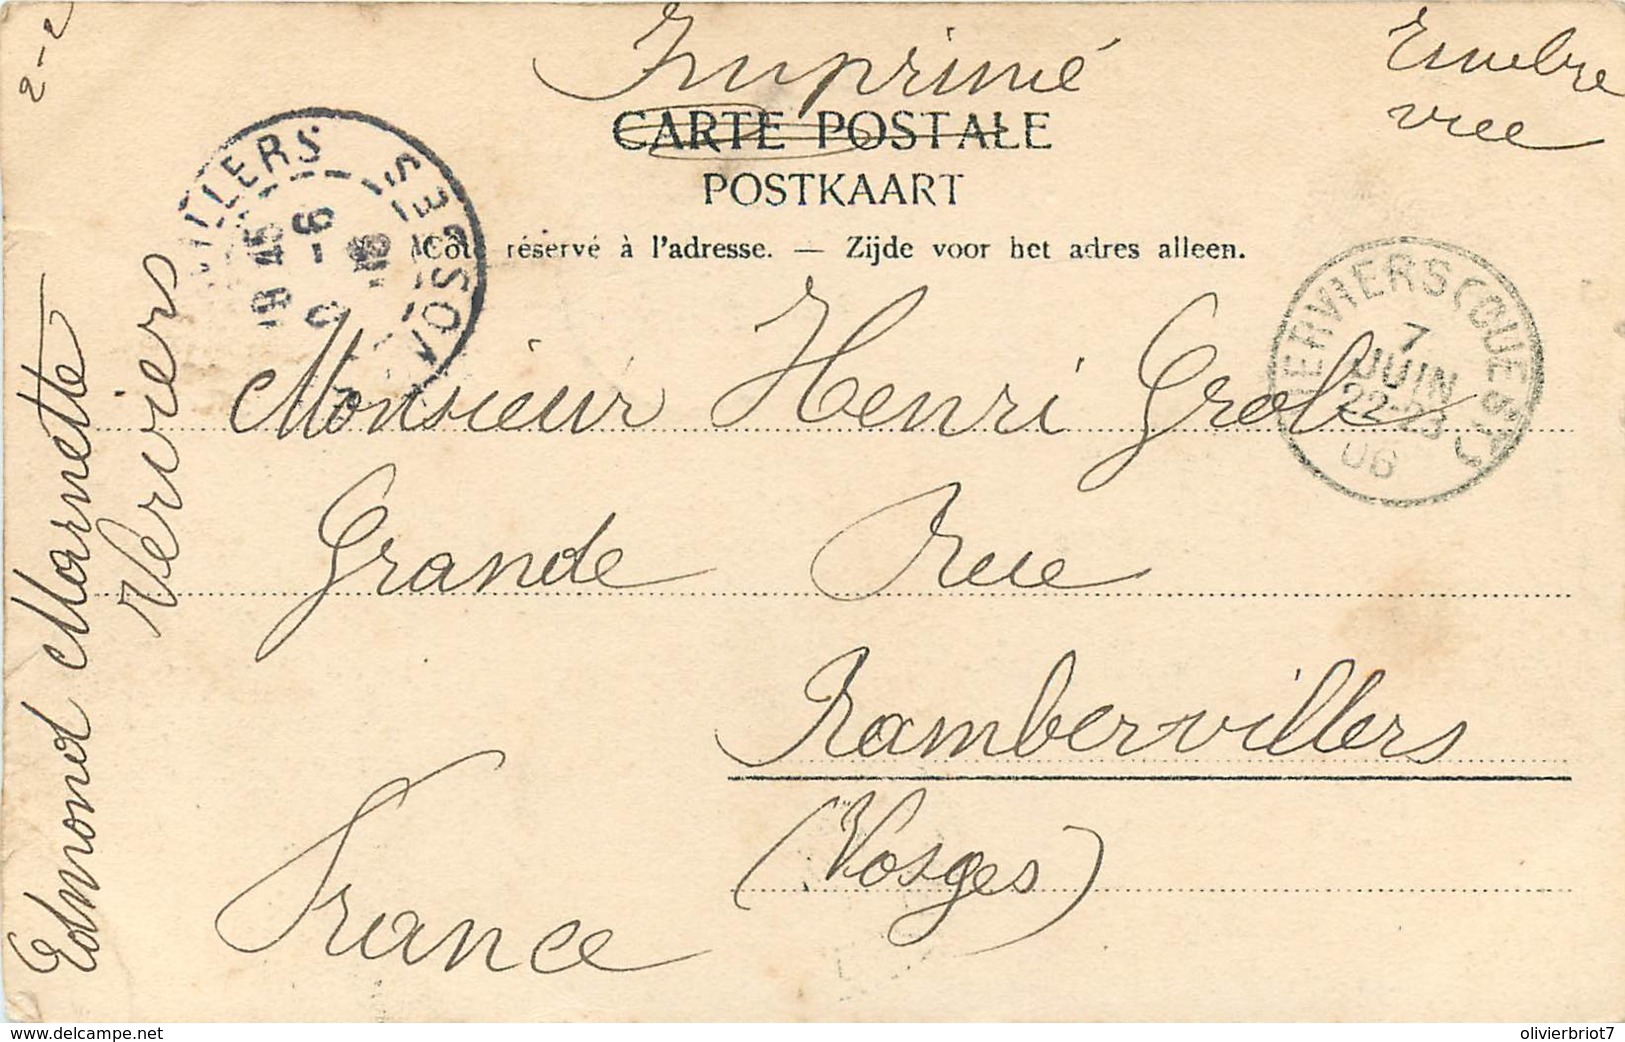 Imprimé
CARTE POSTALE
POSTKAART
Côté réservé à l'adresse. — Zijde voor het adres alleen.
VERVIERS (OUEST)
7
JUIN
22-23
06
VILLERS
VOSGES
18 45
9-6
06
Monsieur Henri
Grande Rue
Rambervillers
(Vosges)
France
Edmond Marnette
Verviers
vue
2-2
www.delcampe.net
olivierbriot7